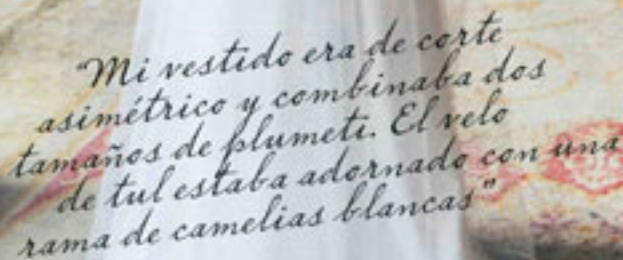 "Mi vestido era de corte
asimétrico y combinaba dos
tamaños de plumeti. El velo
de tul estaba adornado con una
rama de camelias blancas"